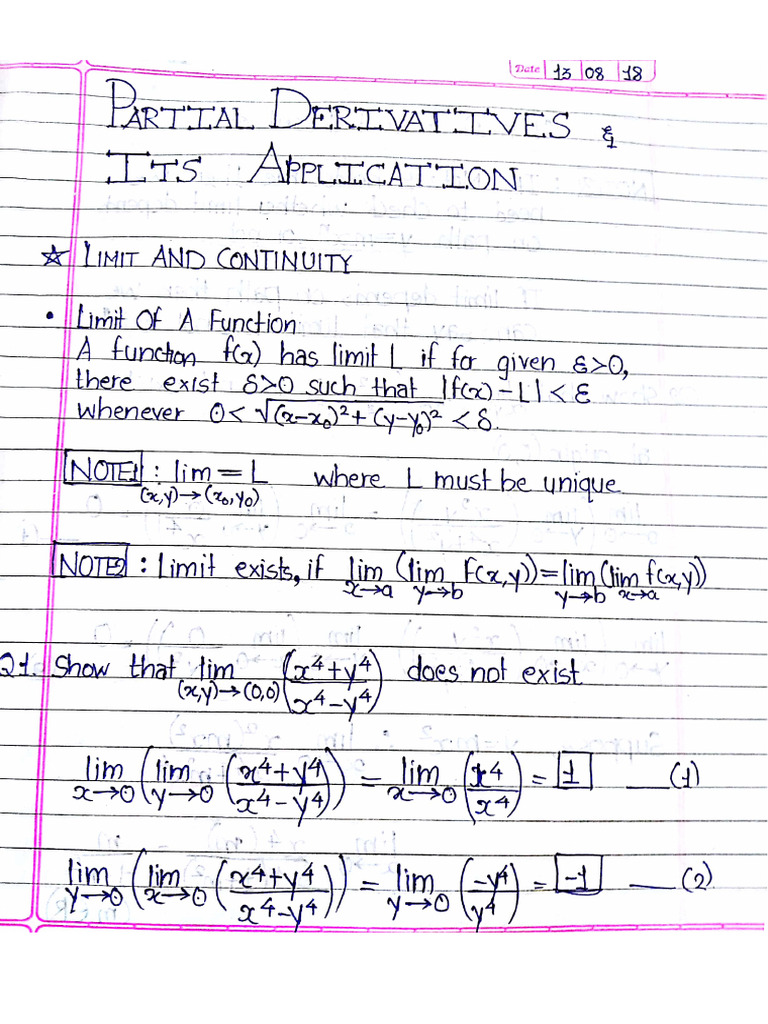 Date 13 08 18
PARTIAL DERIVATIVES &
ITS APPLICATION
☆ LIMIT AND CONTINUITY
• Limit Of A Function
A function f(x) has limit L if for given ε>0,
there exist δ>0 such that |f(x) - L| < ε
whenever 0 < √(x-x₀)² + (y-y₀)² < δ.
NOTE1 : lim = L where L must be unique
(x,y)→(x₀,y₀)
NOTE2 : Limit exists, if lim (lim f(x,y)) = lim (lim f(x,y))
x→a y→b y→b x→a
Q1. Show that lim (x⁴+y⁴ / x⁴-y⁴) does not exist
(x,y)→(0,0)
lim (lim (x⁴+y⁴ / x⁴-y⁴)) = lim (x⁴ / x⁴) = 1 — (1)
x→0 y→0 x→0
lim (lim (x⁴+y⁴ / x⁴-y⁴)) = lim (-y⁴ / y⁴) = -1 — (2)
y→0 x→0 y→0